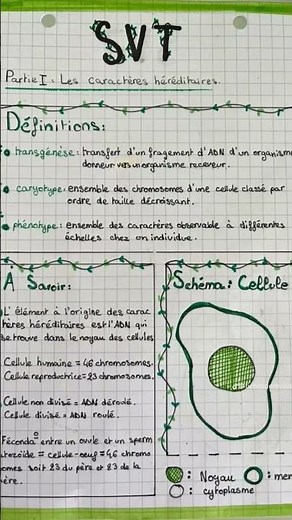 SVT
Partie I : Les caractères héréditaires.
Définitions:
transgénèse: transfert d'un fragement d'ADN d'un organisme
donneur vers un organisme receveur.
caryotype: ensemble des chromosomes d'une cellule classé par
ordre de taille décroissant.
phénotype: ensemble des caractères observable à différentes
échelles chez un individue.
À Savoir:
L'élément à l'origine des carac
tères héréditaires est l'ADN qui
se trouve dans le noyau des cellules
Cellule humaine = 46 chromosomes.
Cellule reproductrice = 23 chromosomes.
Cellule non divisé = ADN déroulé.
Cellule divisé = ADN roulé.
Féconda° entre un ovule et un sperm
atozoïde = cellule-oeuf = 46 chromo
omes soit 23 du père et 23 de la
ère.
Schéma: Cellule
: Noyau : mem
: cytoplasme